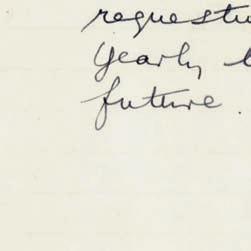 requestin
Yearly
future.